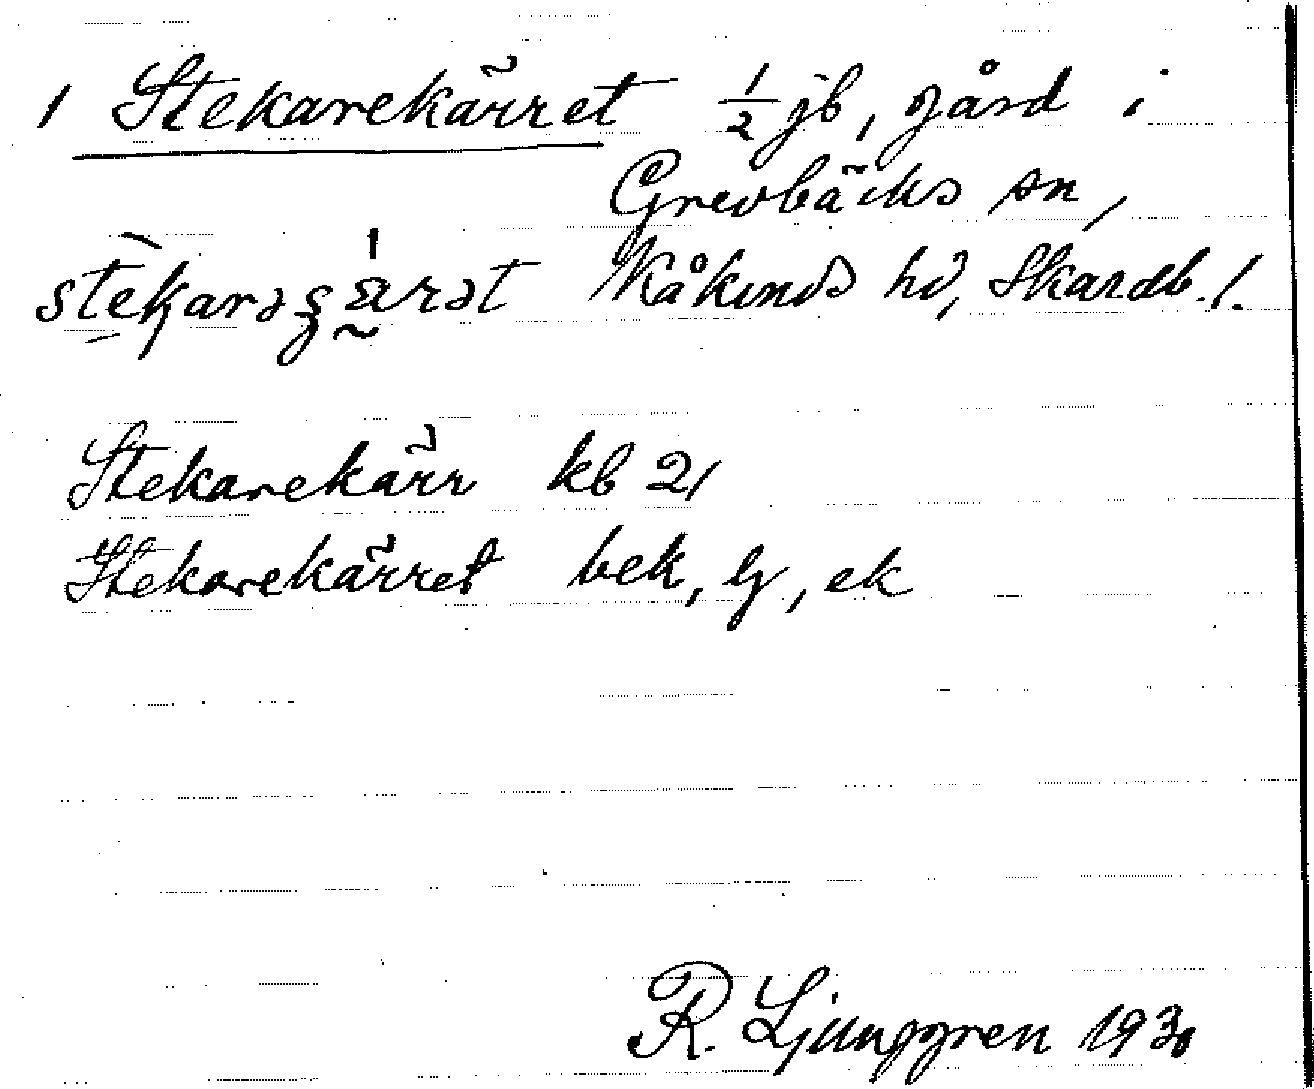 1 Stekarekärret 1/2 jb, gård i
Grevbäcks sn,
Kåkinds hd, Skarab. l.
Stekarekärr kb 21
Stekarekärret bek, lj, ek
R. Ljunggren 1930